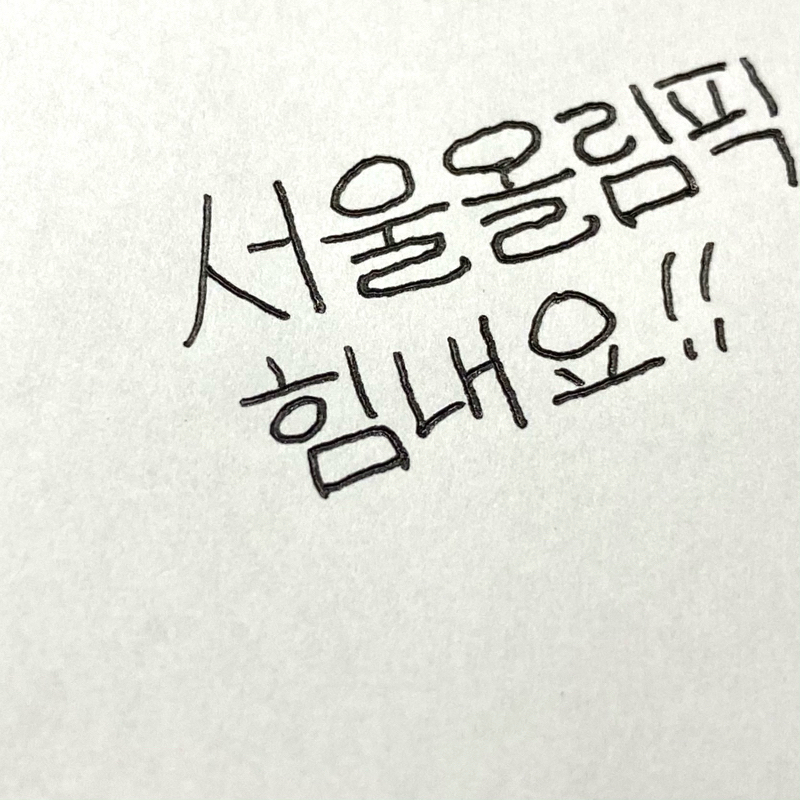 서울올림픽
힘내요!!